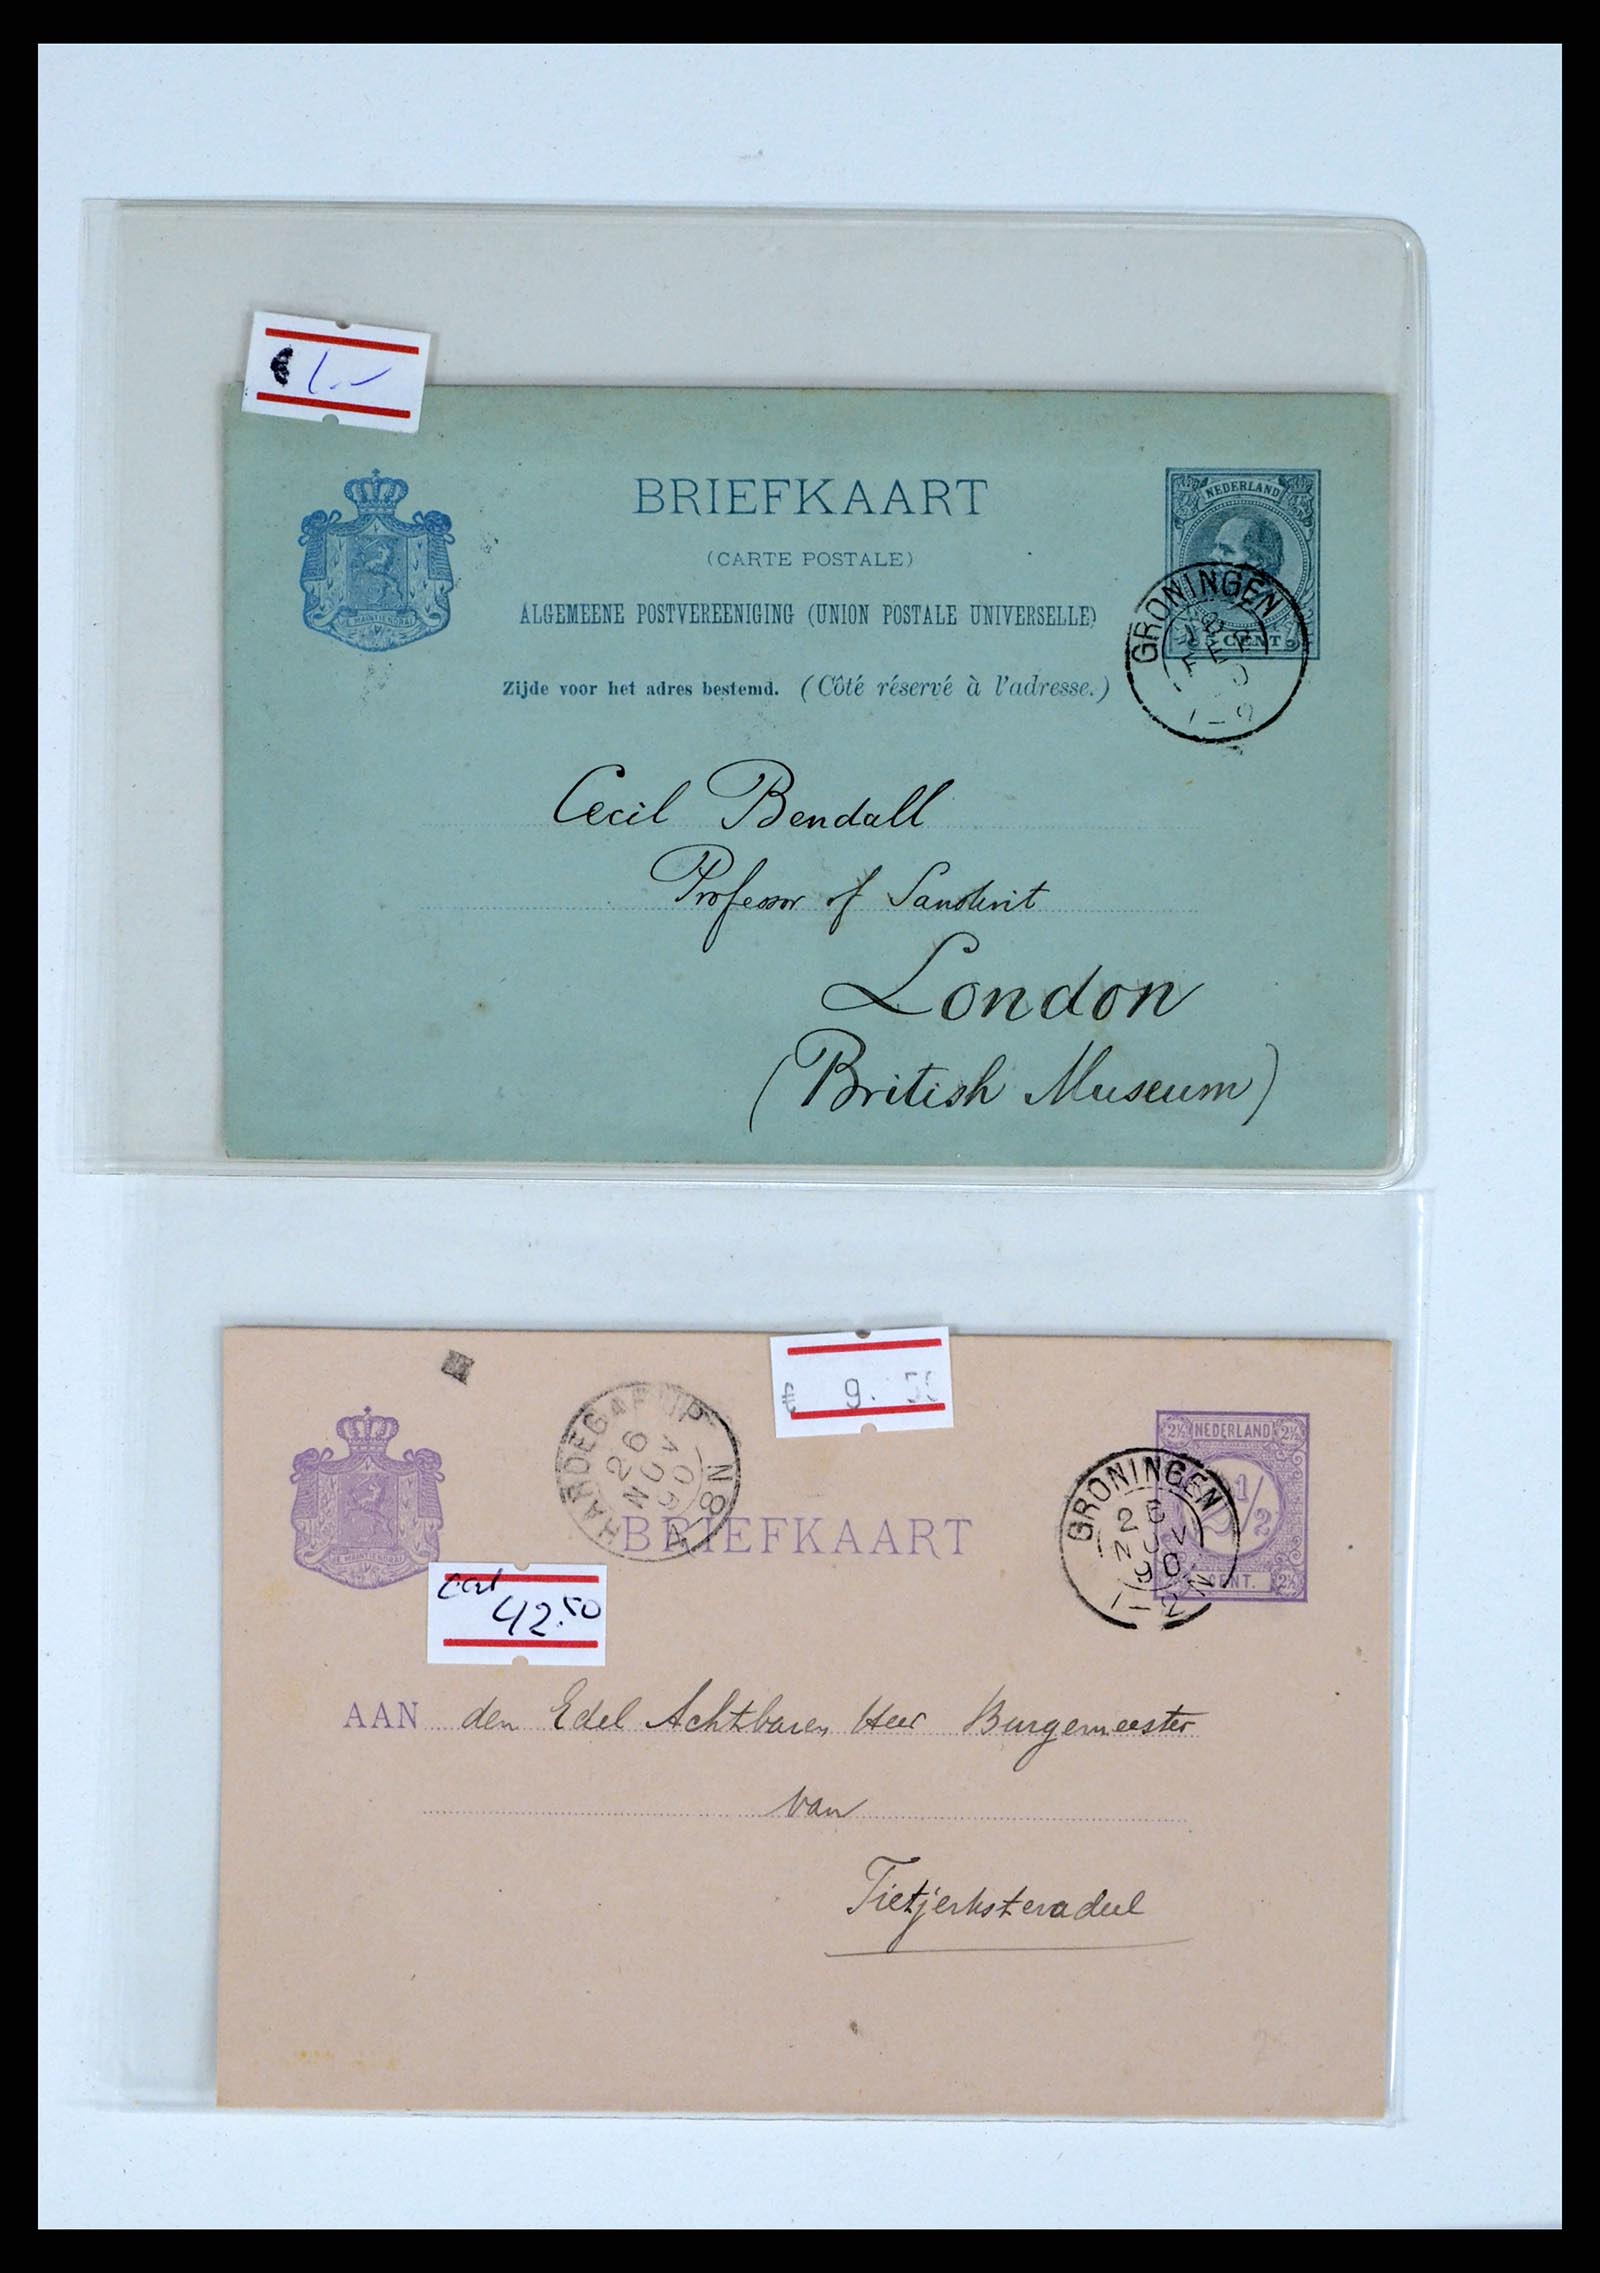 € 1.-
BRIEFKAART
(CARTE POSTALE)
ALGEMEENE POSTVEREENIGING (UNION POSTALE UNIVERSELLE)
Zijde voor het adres bestemd. (Côté réservé à l'adresse.)
JE MAINTIENDRAI
NEDERLAND
5 CENT 5
GRONINGEN
Cecil Bendall
Professor of Sanskrit
London
(British Museum)
€ 9.50
HARDEGARIJP
26
NOV
90
8-N
2½ NEDERLAND 2½
2½
CENT. 2½
GRONINGEN
26
NOV
90
1-2N
JE MAINTIENDRAI
BRIEFKAART
cat
42.50
AAN den Edel Achtbaren Heer Burgemeester
van
Tietjerksteradeel